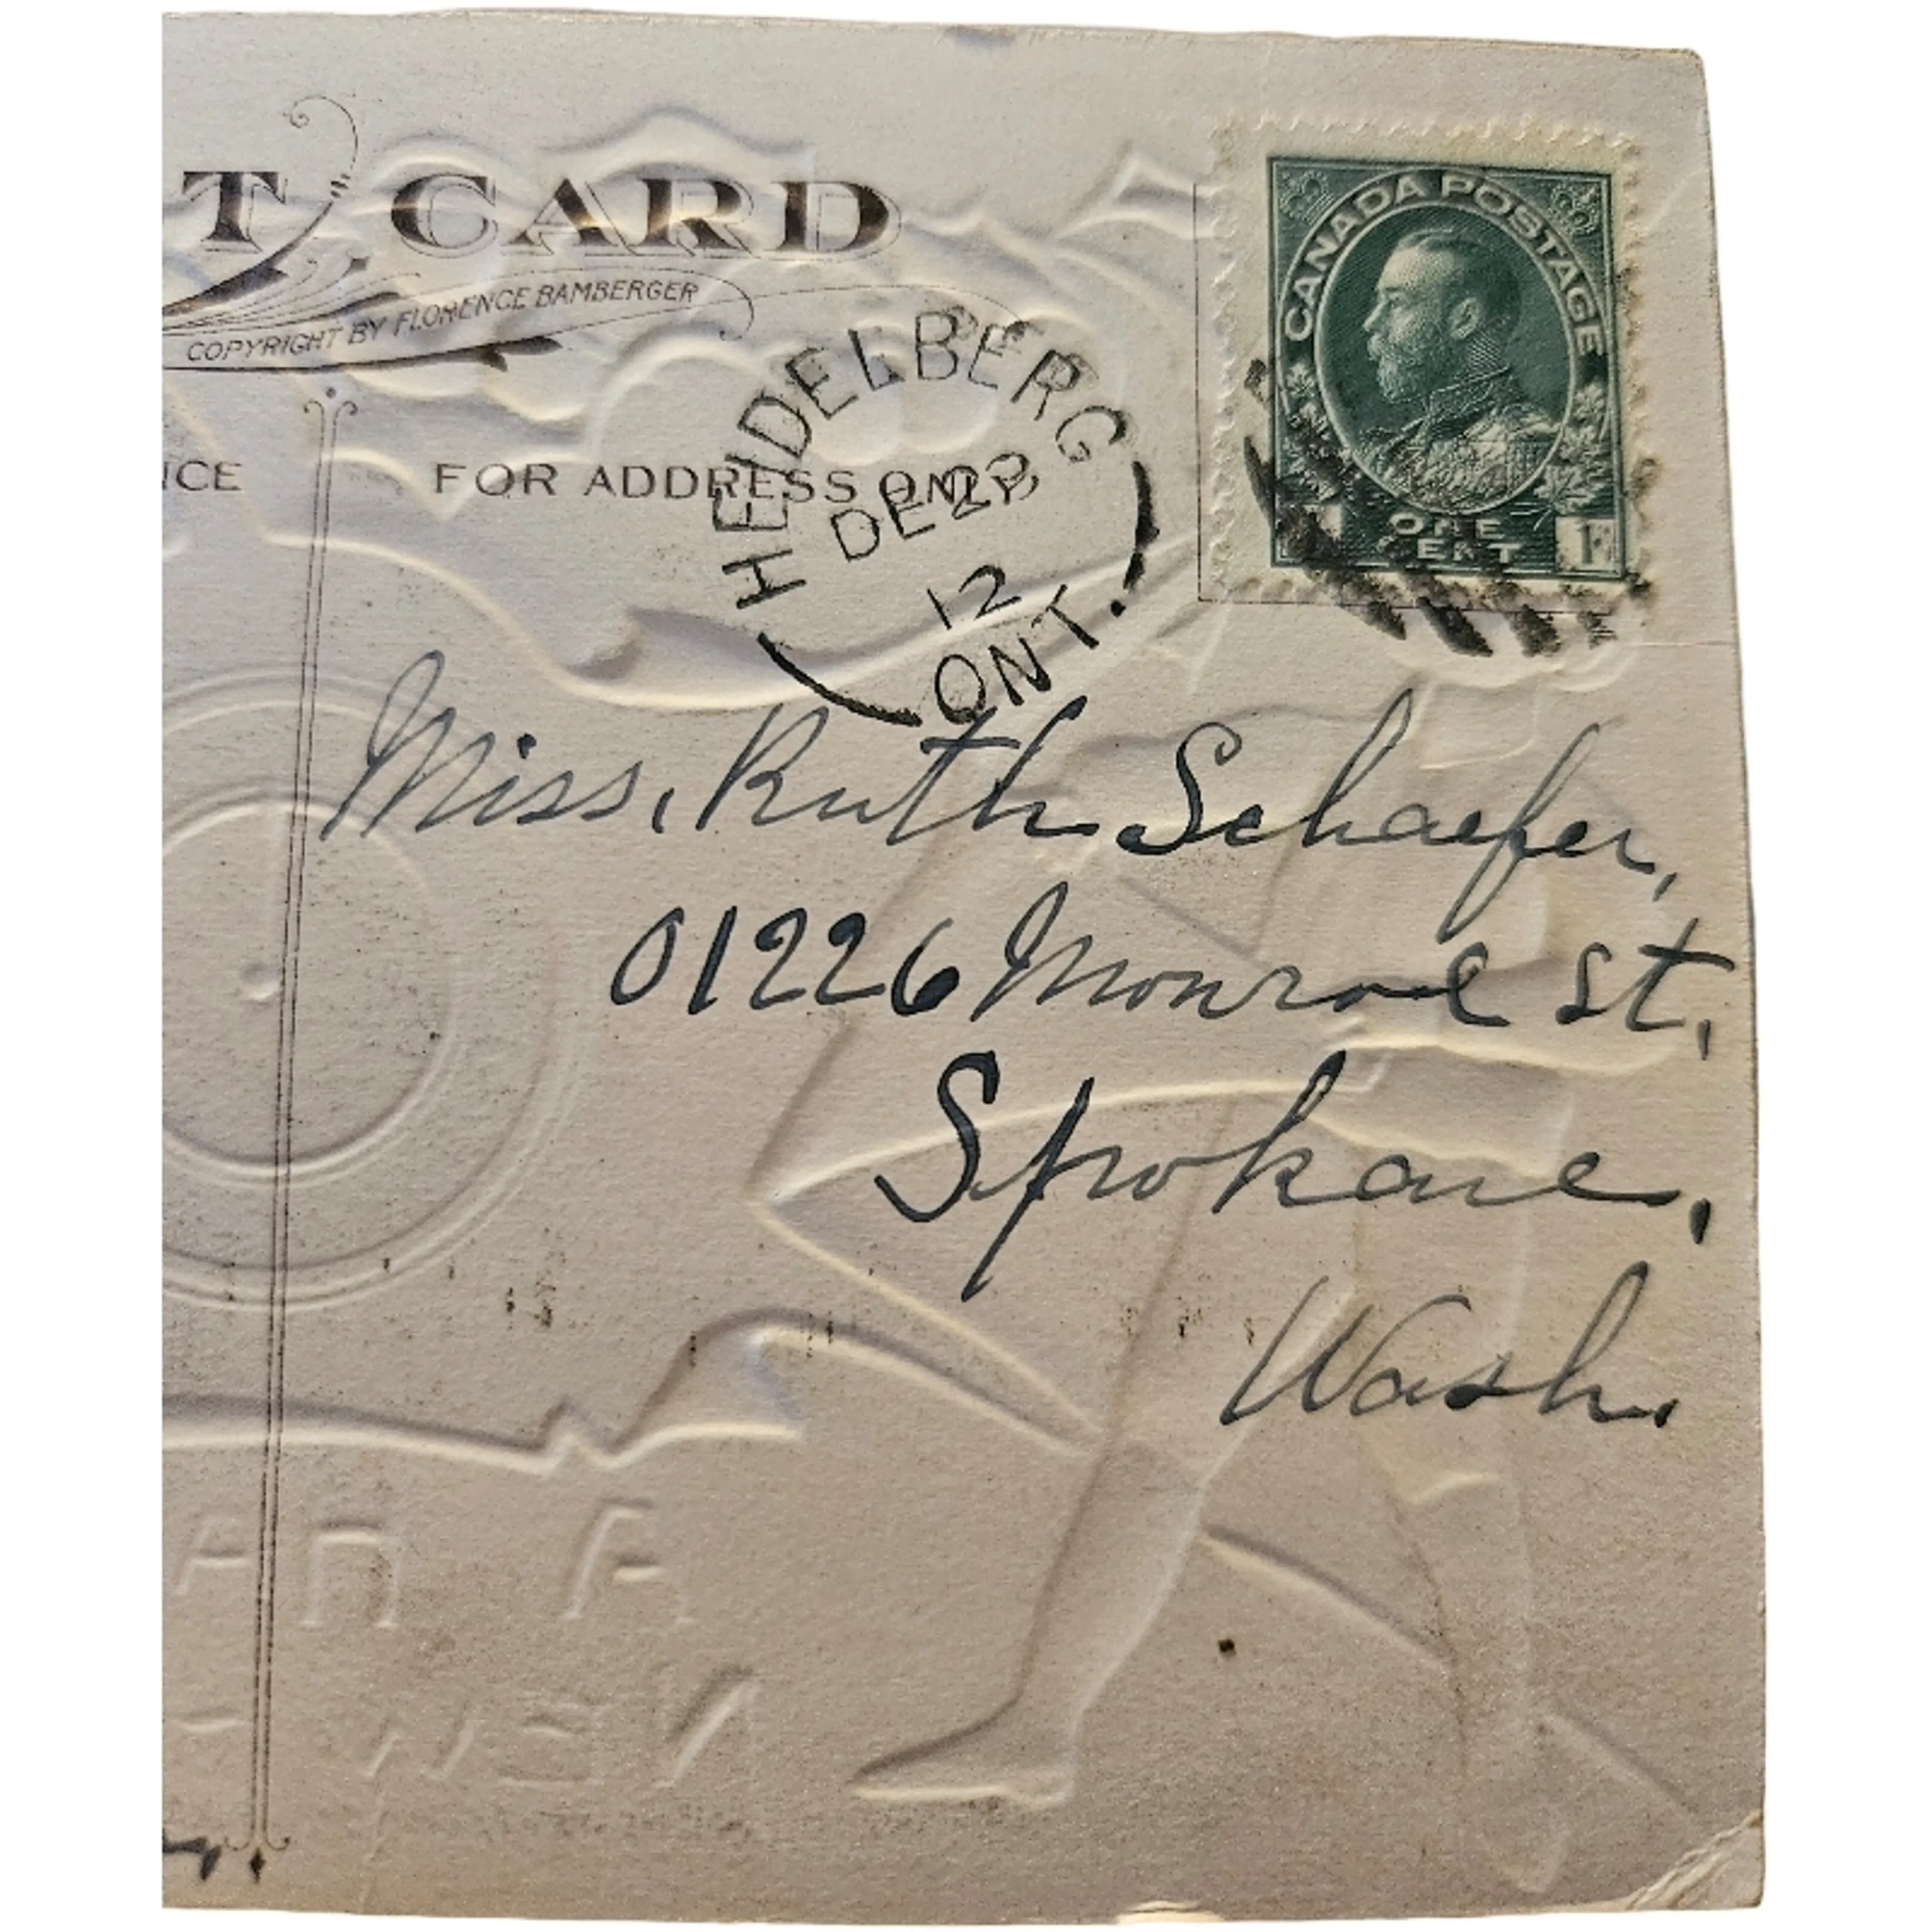 T CARD
COPYRIGHT BY FLORENCE BAMBERGER
NCE
FOR ADDRESS ONLY
HEIDELBERG
DE 23
12
ONT.
CANADA POSTAGE
ONE
CENT
1
Miss, Ruth Schaefer,
01226 Monroe St,
Spokane,
Wash.
NEW